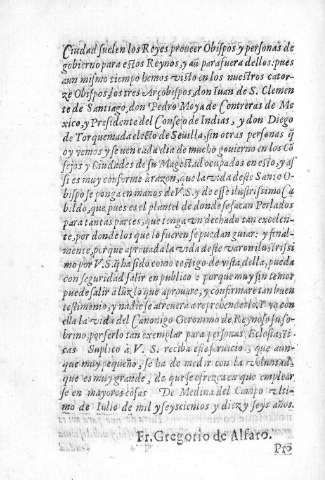 Ciudad suelen los Reyes proueer Obispos y personas de
gobierno para estos Reynos, y aũ para fuera dellos: pues
a un mismo tiempo hemos visto en los nuestros cator-
ze Obispos, los tres Arçobispos, don Iuan de S. Clemen
te de Santiago, don Pedro Moya de Contreras de Me
xico, y Presidente del Consejo de Indias, y don Diego
de Torquemada electo de Seuilla, sin otras personas q̃
oy vemos y se uen cada dia de mucho gouierno en los Cõ
sejos y Ciudades de su Magestad ocupados en esto, y as
si es muy conforme a razon, que la vida deste Santo O-
bispo se ponga en manos de V.S. y de esse ilustrissimo Ca
bildo, que pues es el plantel de donde se sacan Perlados
para tantas partes, que tenga vn dechado tan excelen-
te, por donde los que lo fueren se puedan guiar: y final-
mente, porque aprouada la vida deste varon ilustrissi
mo por V.S. q̃ ha sido como testigo de vista della, pueda
con seguridad salir en publico: porque muy sin temor
puede salir a luz lo que aprouare, y confirmare tan buen
testimonio, y nadie se atreuera a reprobendello. Pongo con
ella la vida del Canonigo Geronimo de Reynoso su so-
brino, por serlo tan exemplar para personas Eclesiasti-
cas Suplico a V. S. reciba este seruicio, que aun-
que muy pequeño, se ha de medir con la voluntad,
que es muy grande, de que se ofrezca en que emplear
se en mayores cosas De Medina del Campo vlti-
mo de Iulio de mil y seyscientos y diez y seys años.
Fr. Gregorio de Alfaro.
Pro